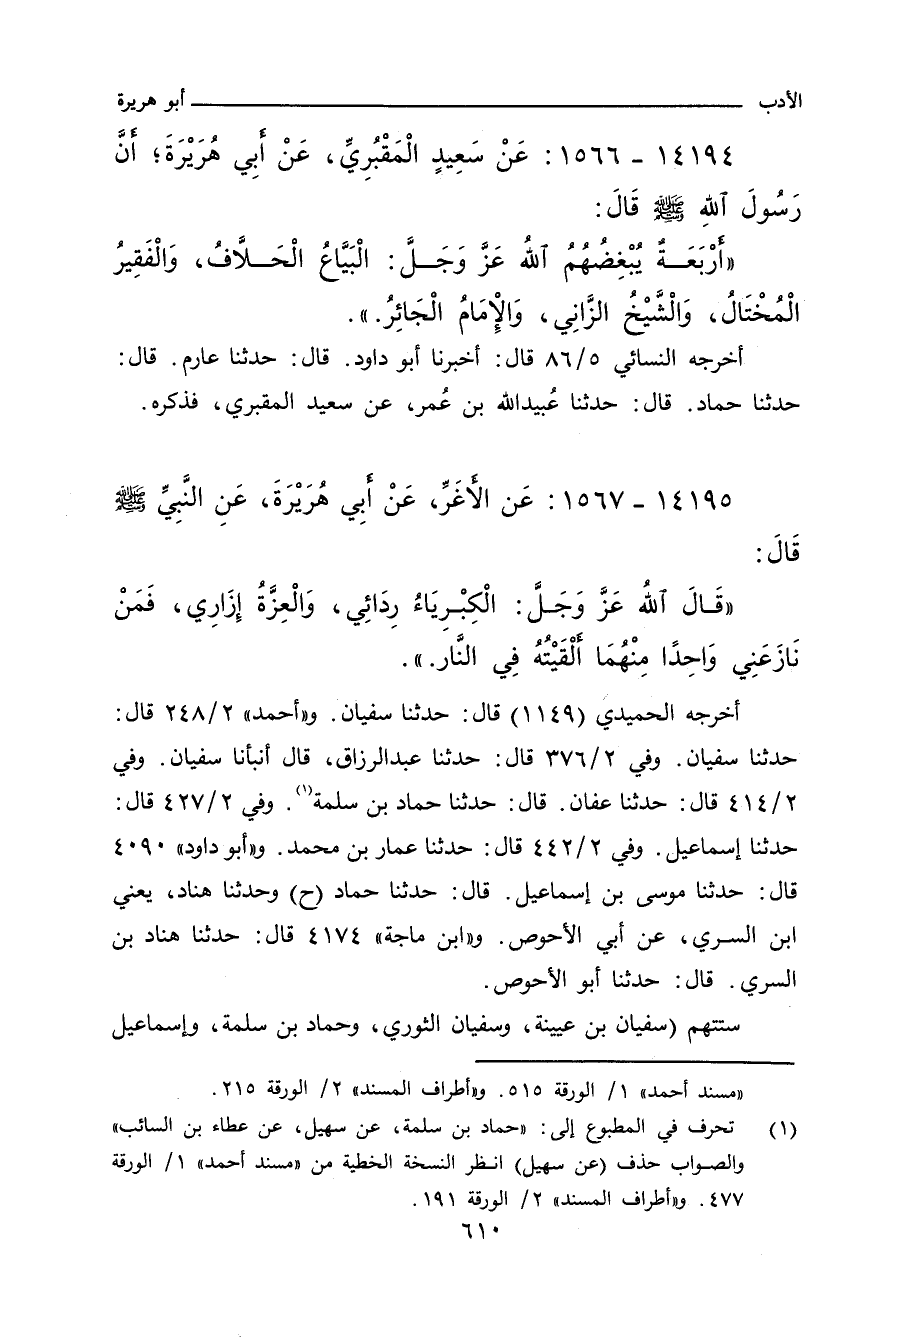 الأدب ــــــــــ أبو هريرة
١٤١٩٤ ـ ١٥٦٦ : عَنْ سَعِيدٍ الْمَقْبُرِيِّ، عَنْ أَبِي هُرَيْرَةَ؛ أَنَّ
رَسُولَ ٱللهِ ﷺ قَالَ:
«أَرْبَعَـةٌ يُبْغِضُهُمُ ٱللهُ عَزَّ وَجَـلَّ : الْبَيَّاعُ الْحَـلاَّفُ، وَالْفَقِيرُ
الْمُخْتَالُ، وَالْشَّيْخُ الزَّانِي، وَالْإِمَامُ الْجَائِرُ.».
أخرجه النسائي ٨٦/٥ قال: أخبرنا أبو داود. قال: حدثنا عارم. قال:
حدثنا حماد. قال: حدثنا عُبيدالله بن عُمر، عن سعيد المقبري، فذكره.
١٤١٩٥ ـ ١٥٦٧ : عَن الأَغَرِّ، عَنْ أَبِي هُرَيْرَةَ، عَنِ النَّبِيِّ ﷺ
قَالَ:
«قَـالَ ٱللهُ عَزَّ وَجَـلَّ : الْكِبْـرِيَاءُ رِدَائِي، وَالْعِزَّةُ إِزَارِي، فَمَنْ
نَازَعَنِي وَاحِدًا مِنْهُمَا أَلْقَيْتُهُ فِي النَّار.».
أخرجه الحميدي (١١٤٩) قال: حدثنا سفيان. و«أحمد» ٢٤٨/٢ قال:
حدثنا سفيان. وفي ٣٧٦/٢ قال: حدثنا عبدالرزاق، قال أنبأنا سفيان. وفي
٤١٤/٢ قال: حدثنا عفان. قال: حدثنا حماد بن سلمة(١). وفي ٤٢٧/٢ قال:
حدثنا إسماعيل. وفي ٤٤٢/٢ قال: حدثنا عمار بن محمد. و«أبو داود» ٤٠٩٠
قال: حدثنا موسى بن إسماعيل. قال: حدثنا حماد (ح) وحدثنا هناد، يعني
ابن السـري، عن أبي الأحوص. و«ابن ماجة» ٤١٧٤ قال: حدثنا هناد بن
السري. قال: حدثنا أبو الأحوص.
ستتهم (سفيان بن عيينة، وسفيان الثوري، وحماد بن سلمة، وإسماعيل
«مسند أحمد» ١/ الورقة ٥١٥. و«أطراف المسند» ٢/ الورقة ٢١٥.
(١) تحرف في المطبوع إلى: «حماد بن سلمة، عن سهيل، عن عطاء بن السائب»
والصـواب حذف (عن سهيل) انـظر النسخة الخطية من «مسند أحمد» ١/ الورقة
٤٧٧. و«أطراف المسند» ٢/ الورقة ١٩١.
٦١٠